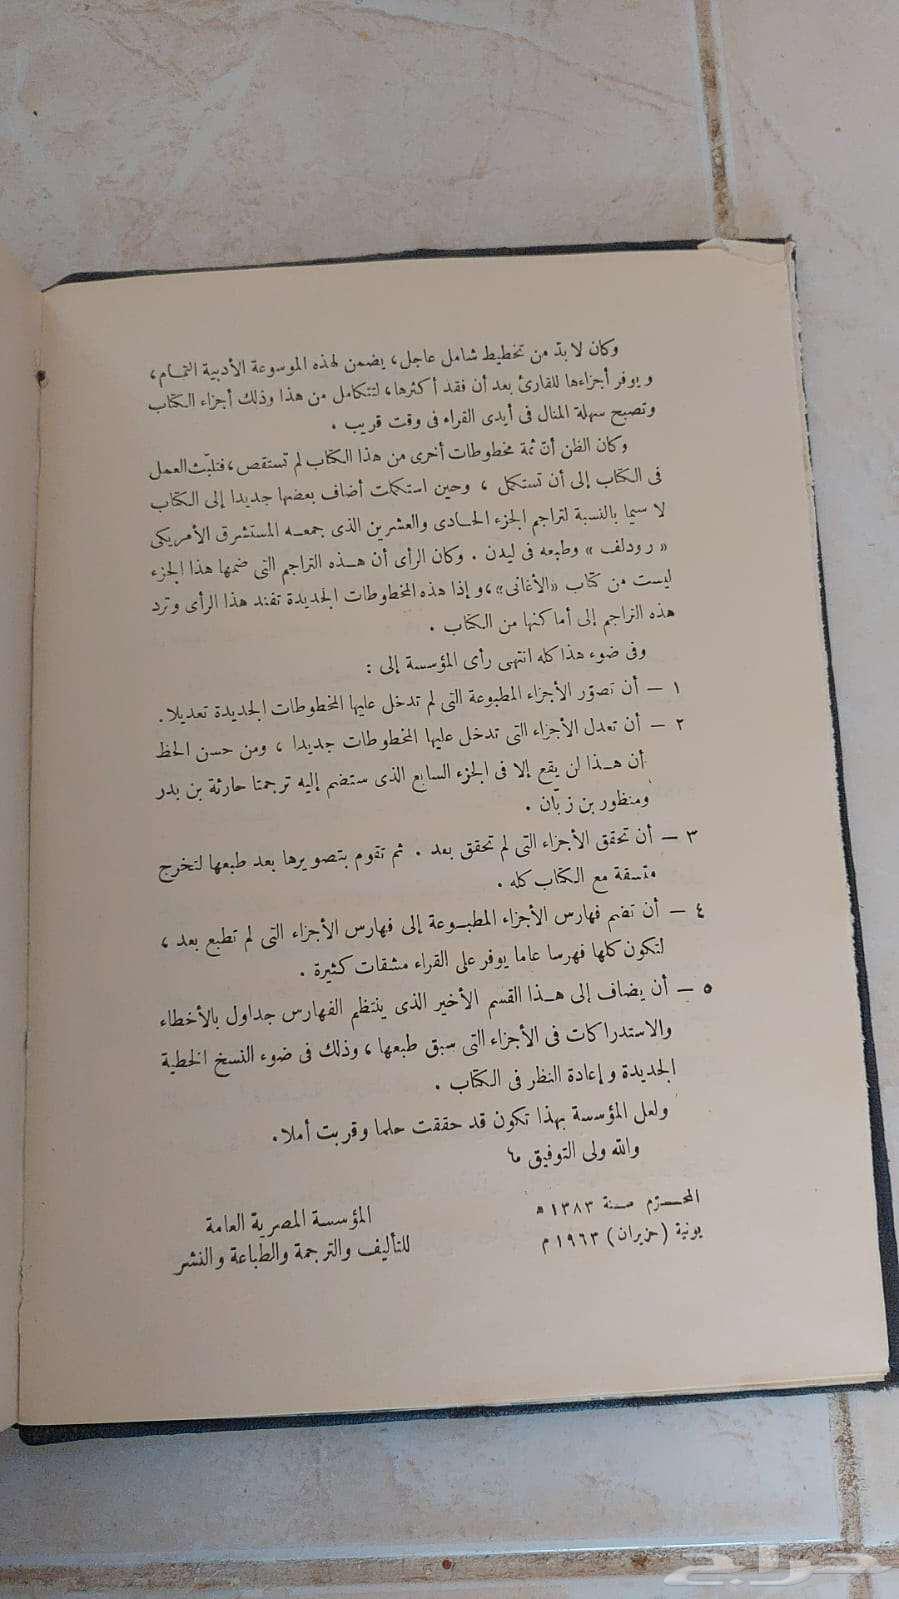 وكان لا بدّ من تخطيط شامل عاجل، يضمن لهذه الموسوعة الأدبية التمـام،
ويوفر أجزاءها للقارئ بعد أن فقد أكثرها، لتتكامل من هذا وذلك أجزاء الكتاب
وتصبح سهلة المنال فى أيدى القراء فى وقت قريب .
وكان الظن أنّ ثمة مخطوطات أخرى من هذا الكتاب لم تستقص، فتلبّث العمل
فى الكتاب إلى أن تستكمل ، وحين استكملت أضاف بعضها جديدا إلى الكتاب
لا سيما بالنسبة لتراجم الجزء الحـادى والعشرين الذى جمعـه المستشرق الأمريكى
« رودلف » وطبعه فى ليدن . وكان الرأى أن هـذه التراجم التى ضمها هذا الجزء
ليست من كتاب «الأغانى»، وإذا هذه المخطوطات الجديدة تفند هذا الرأى وترد
هذه التراجم إلى أماكنها من الكتاب .
وفى ضوء هذا كله انتهى رأى المؤسسة إلى :
١ – أن تصوّر الأجزاء المطبوعة التى لم تدخل عليها المخطوطات الجديدة تعديلا.
٢ – أن تعدل الأجزاء التى تدخل عليها المخطوطات جديدا ، ومن حسن الحظ
أن هـذا لن يقع إلا فى الجزء السابع الذى ستضم إليه ترجمتا حارثة بن بدر
ومنظور بن زبّان .
٣ – أن تحقق الأجزاء التى لم تحقق بعد . ثم تقوم بتصويرها بعد طبعها لتخرج
متسقة مع الكتاب كله .
٤ – أن تضم فهارس الأجزاء المطبـوعة إلى فهارس الأجزاء التى لم تطبع بعد ،
لتكون كلها فهرسا عاما يوفر على القراء مشقات كثيرة .
٥ – أن يضاف إلى هـذا القسم الأخير الذى ينتظم الفهارس جداول بالأخطاء
والاستدراكات فى الأجزاء التى سبق طبعها ، وذلك فى ضوء النسخ الخطية
الجديدة وإعادة النظر فى الكتاب .
ولعل المؤسسة بهذا تكون قد حققت حلما وقربت أملا.
والله ولى التوفيق ،
المحـرّم سـنة ١٣٨٣ ه
يونية (حزيران) ١٩٦٣ م
المؤسسة المصرية العامة
للتأليف والترجمة والطباعة والنشر
حراج